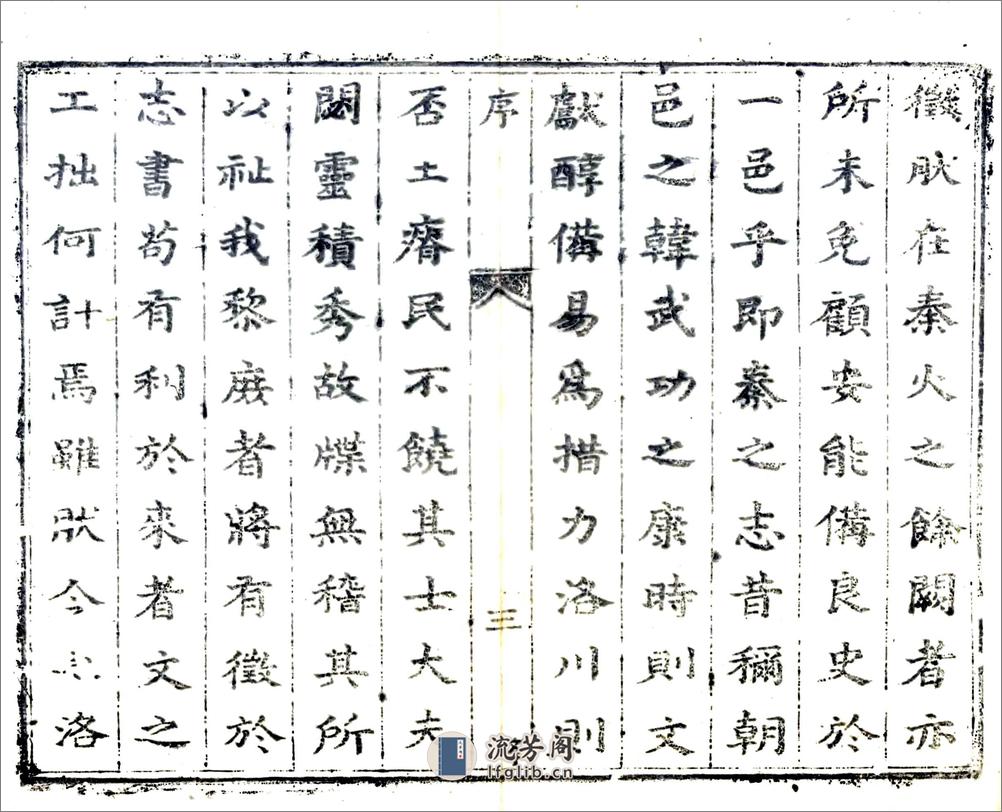 徵肰在秦火之餘闕者亦
所未免顧安能備良史於
一邑乎即秦之志昔稱朝
邑之韓武功之康時則文
獻醇備易爲措力洛川則
序
三
否土瘠民不饒其士大夫
閟靈積秀故牒無稽其所
以祉我黎庻者將有徵於
志書苟有利於來者文之
工拙何計焉雖肰今之洛
流芳阁
lfglib.cn